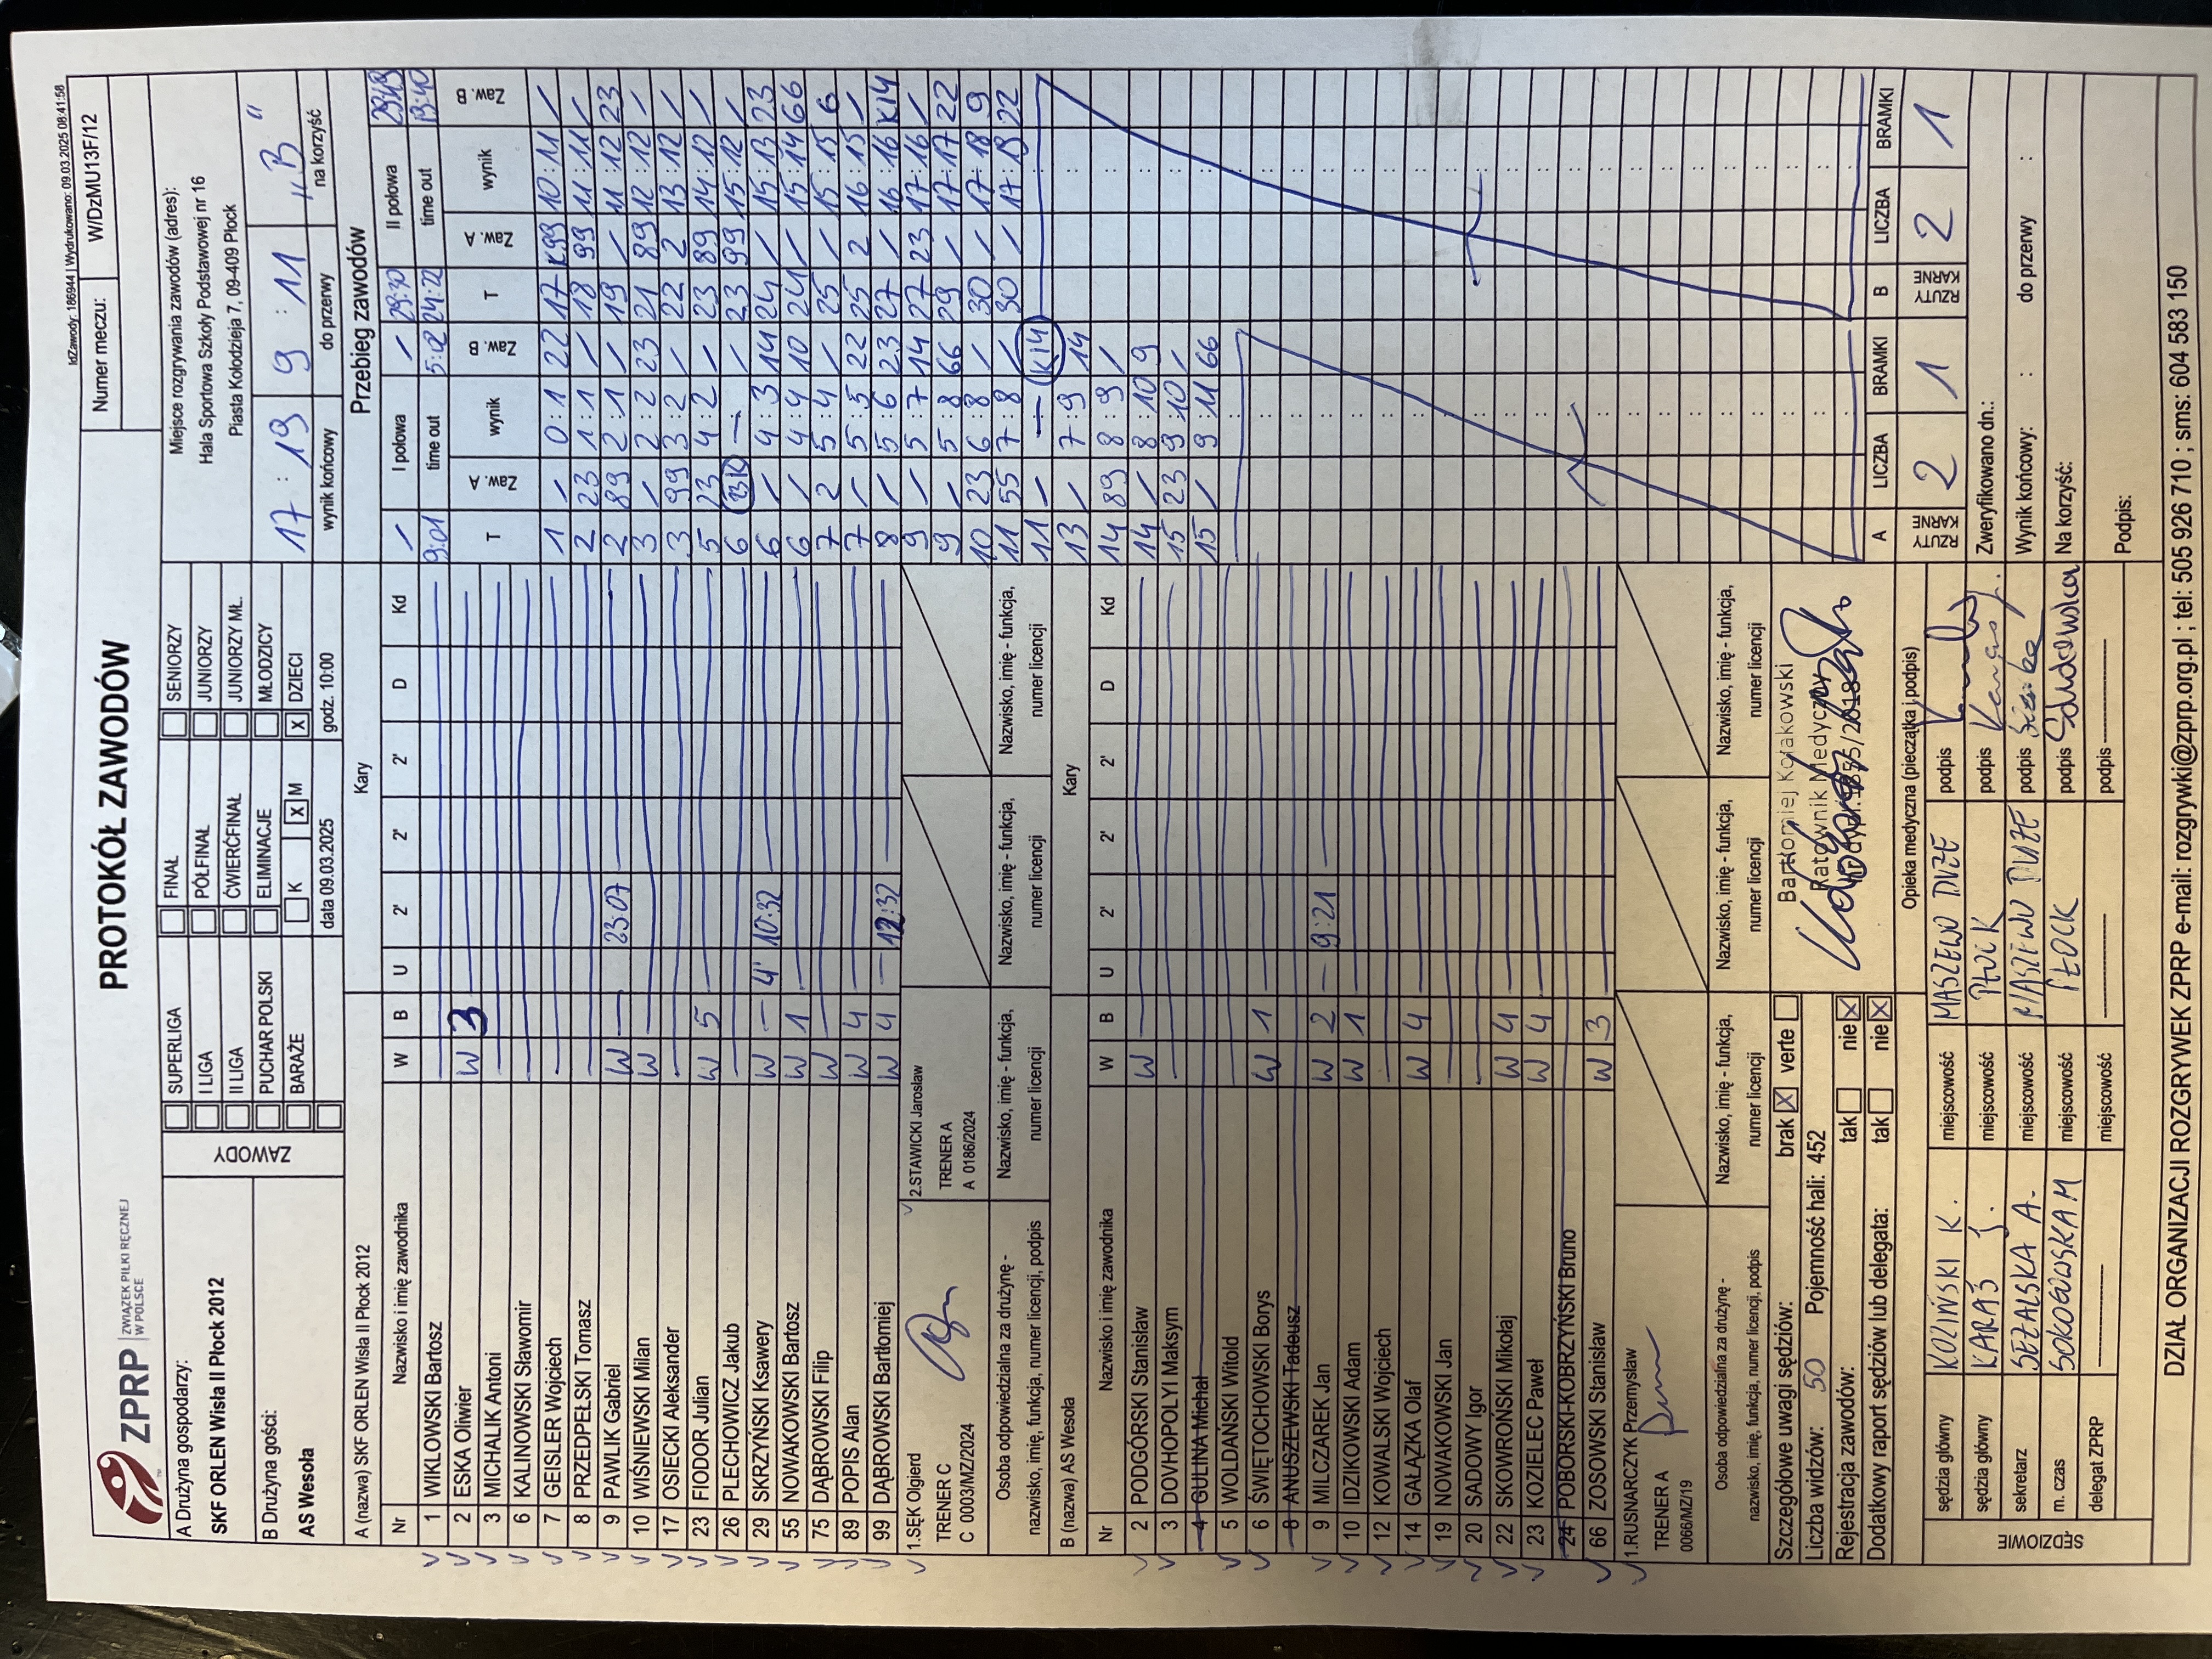 IdZawody: 186944 | Wydrukowano: 09.03.2025 08:41:58
ZPRP ZWIĄZEK PIŁKI RĘCZNEJ W POLSCE
PROTOKÓŁ ZAWODÓW
Numer meczu: W/DzMU13F/12
A Drużyna gospodarzy:
SKF ORLEN Wisła II Płock 2012
B Drużyna gości:
AS Wesoła
ZAWODY
SUPERLIGA FINAŁ SENIORZY
I LIGA PÓŁFINAŁ JUNIORZY
II LIGA ĆWIERĆFINAŁ JUNIORZY MŁ.
PUCHAR POLSKI ELIMINACJE MŁODZICY
BARAŻE K X M X DZIECI
data 09.03.2025 godz. 10:00
Miejsce rozgrywania zawodów (adres):
Hala Sportowa Szkoły Podstawowej nr 16
Piasta Kołodzieja 7, 09-409 Płock
17 : 19 9 : 11 "B"
wynik końcowy do przerwy na korzyść
A (nazwa) SKF ORLEN Wisła II Płock 2012 Kary
Nr Nazwisko i imię zawodnika W B U 2' 2' 2' D Kd
1 WIKLOWSKI Bartosz
2 ESKA Oliwier W 3
3 MICHALIK Antoni
6 KALINOWSKI Sławomir
7 GEISLER Wojciech
8 PRZEDPEŁSKI Tomasz
9 PAWLIK Gabriel W – 23:07
10 WIŚNIEWSKI Milan W
17 OSIECKI Aleksander
23 FIODOR Julian W 5
26 PLECHOWICZ Jakub
29 SKRZYŃSKI Ksawery W – 4' 10:32
55 NOWAKOWSKI Bartosz W 1
75 DĄBROWSKI Filip W
89 POPIS Alan W 4
99 DĄBROWSKI Bartłomiej W 4 – 12:32
1.SĘK Olgierd
TRENER C
C 0003/MZ/2024
2.STAWICKI Jarosław
TRENER A
A 0186/2024
Osoba odpowiedzialna za drużynę - nazwisko, imię, funkcja, numer licencji, podpis
Nazwisko, imię - funkcja, numer licencji
Nazwisko, imię - funkcja, numer licencji
Nazwisko, imię - funkcja, numer licencji
B (nazwa) AS Wesoła Kary
Nr Nazwisko i imię zawodnika W B U 2' 2' 2' D Kd
2 PODGÓRSKI Stanisław W
3 DOVHOPOLYI Maksym
4 GULINA Michał
5 WOLDAŃSKI Witold
6 ŚWIĘTOCHOWSKI Borys W 1
8 ANUSZEWSKI Tadeusz
9 MILCZAREK Jan W 2 – 9:21 –
10 IDZIKOWSKI Adam W 1
12 KOWALSKI Wojciech
14 GAŁĄZKA Olaf W 4
19 NOWAKOWSKI Jan
20 SADOWY Igor
22 SKOWROŃSKI Mikołaj W 4
23 KOZIELEC Paweł W 4
24 POBORSKI-KOBRZYŃSKI Bruno
66 ZOSOWSKI Stanisław W 3
1.RUSNARCZYK Przemysław
TRENER A
0066/MZ/19
Osoba odpowiedzialna za drużynę - nazwisko, imię, funkcja, numer licencji, podpis
Nazwisko, imię - funkcja, numer licencji
Nazwisko, imię - funkcja, numer licencji
Nazwisko, imię - funkcja, numer licencji
Przebieg zawodów
I połowa / / II połowa 29:30 29:49
time out 9:01 5:02 time out 24:22 19:40
T Zaw. A wynik Zaw. B
1 / 0:1 22
2 23 1:1 /
2 89 2:1 /
3 / 2:2 23
3 99 3:2 /
5 23 4:2 /
6 23K — /
6 / 4:3 14
6 / 4:4 10
7 2 5:4 /
7 / 5:5 22
8 / 5:6 23
9 / 5:7 14
9 / 5:8 66
10 23 6:8 /
11 55 7:8 /
11 / — K14
13 / 7:9 14
14 89 8:9 /
14 / 8:10 9
15 23 9:10 /
15 / 9:11 66
T Zaw. A wynik Zaw. B
17 K99 10:11 /
18 99 11:11 /
19 / 11:12 23
21 89 12:12 /
22 2 13:12 /
23 89 14:12 /
23 99 15:12 /
24 / 15:13 23
24 / 15:14 66
25 / 15:15 6
25 2 16:15 /
27 / 16:16 K14
27 23 17:16 /
29 / 17:17 22
30 / 17:18 9
30 / 17:19 22
A RZUTY KARNE LICZBA 2 BRAMKI 1
B RZUTY KARNE LICZBA 2 BRAMKI 1
Szczegółowe uwagi sędziów: brak X verte
Liczba widzów: 50 Pojemność hali: 452
Rejestracja zawodów: tak nie X
Dodatkowy raport sędziów lub delegata: tak nie X
Bartłomiej Kołakowski
Ratownik Medyczny
Opieka medyczna (pieczątka i podpis)
SĘDZIOWIE
sędzia główny KOZIŃSKI K. miejscowość MASZEWO DUŻE podpis
sędzia główny KARAŚ J. miejscowość PŁOCK podpis Karaś J.
sekretarz miejscowość MASZEWO DUŻE podpis
m. czas miejscowość PŁOCK podpis
delegat ZPRP miejscowość podpis
Zweryfikowano dn.:
Wynik końcowy: : do przerwy :
Na korzyść:
Podpis:
DZIAŁ ORGANIZACJI ROZGRYWEK ZPRP e-mail: rozgrywki@zprp.org.pl ; tel: 505 926 710 ; sms: 604 583 150